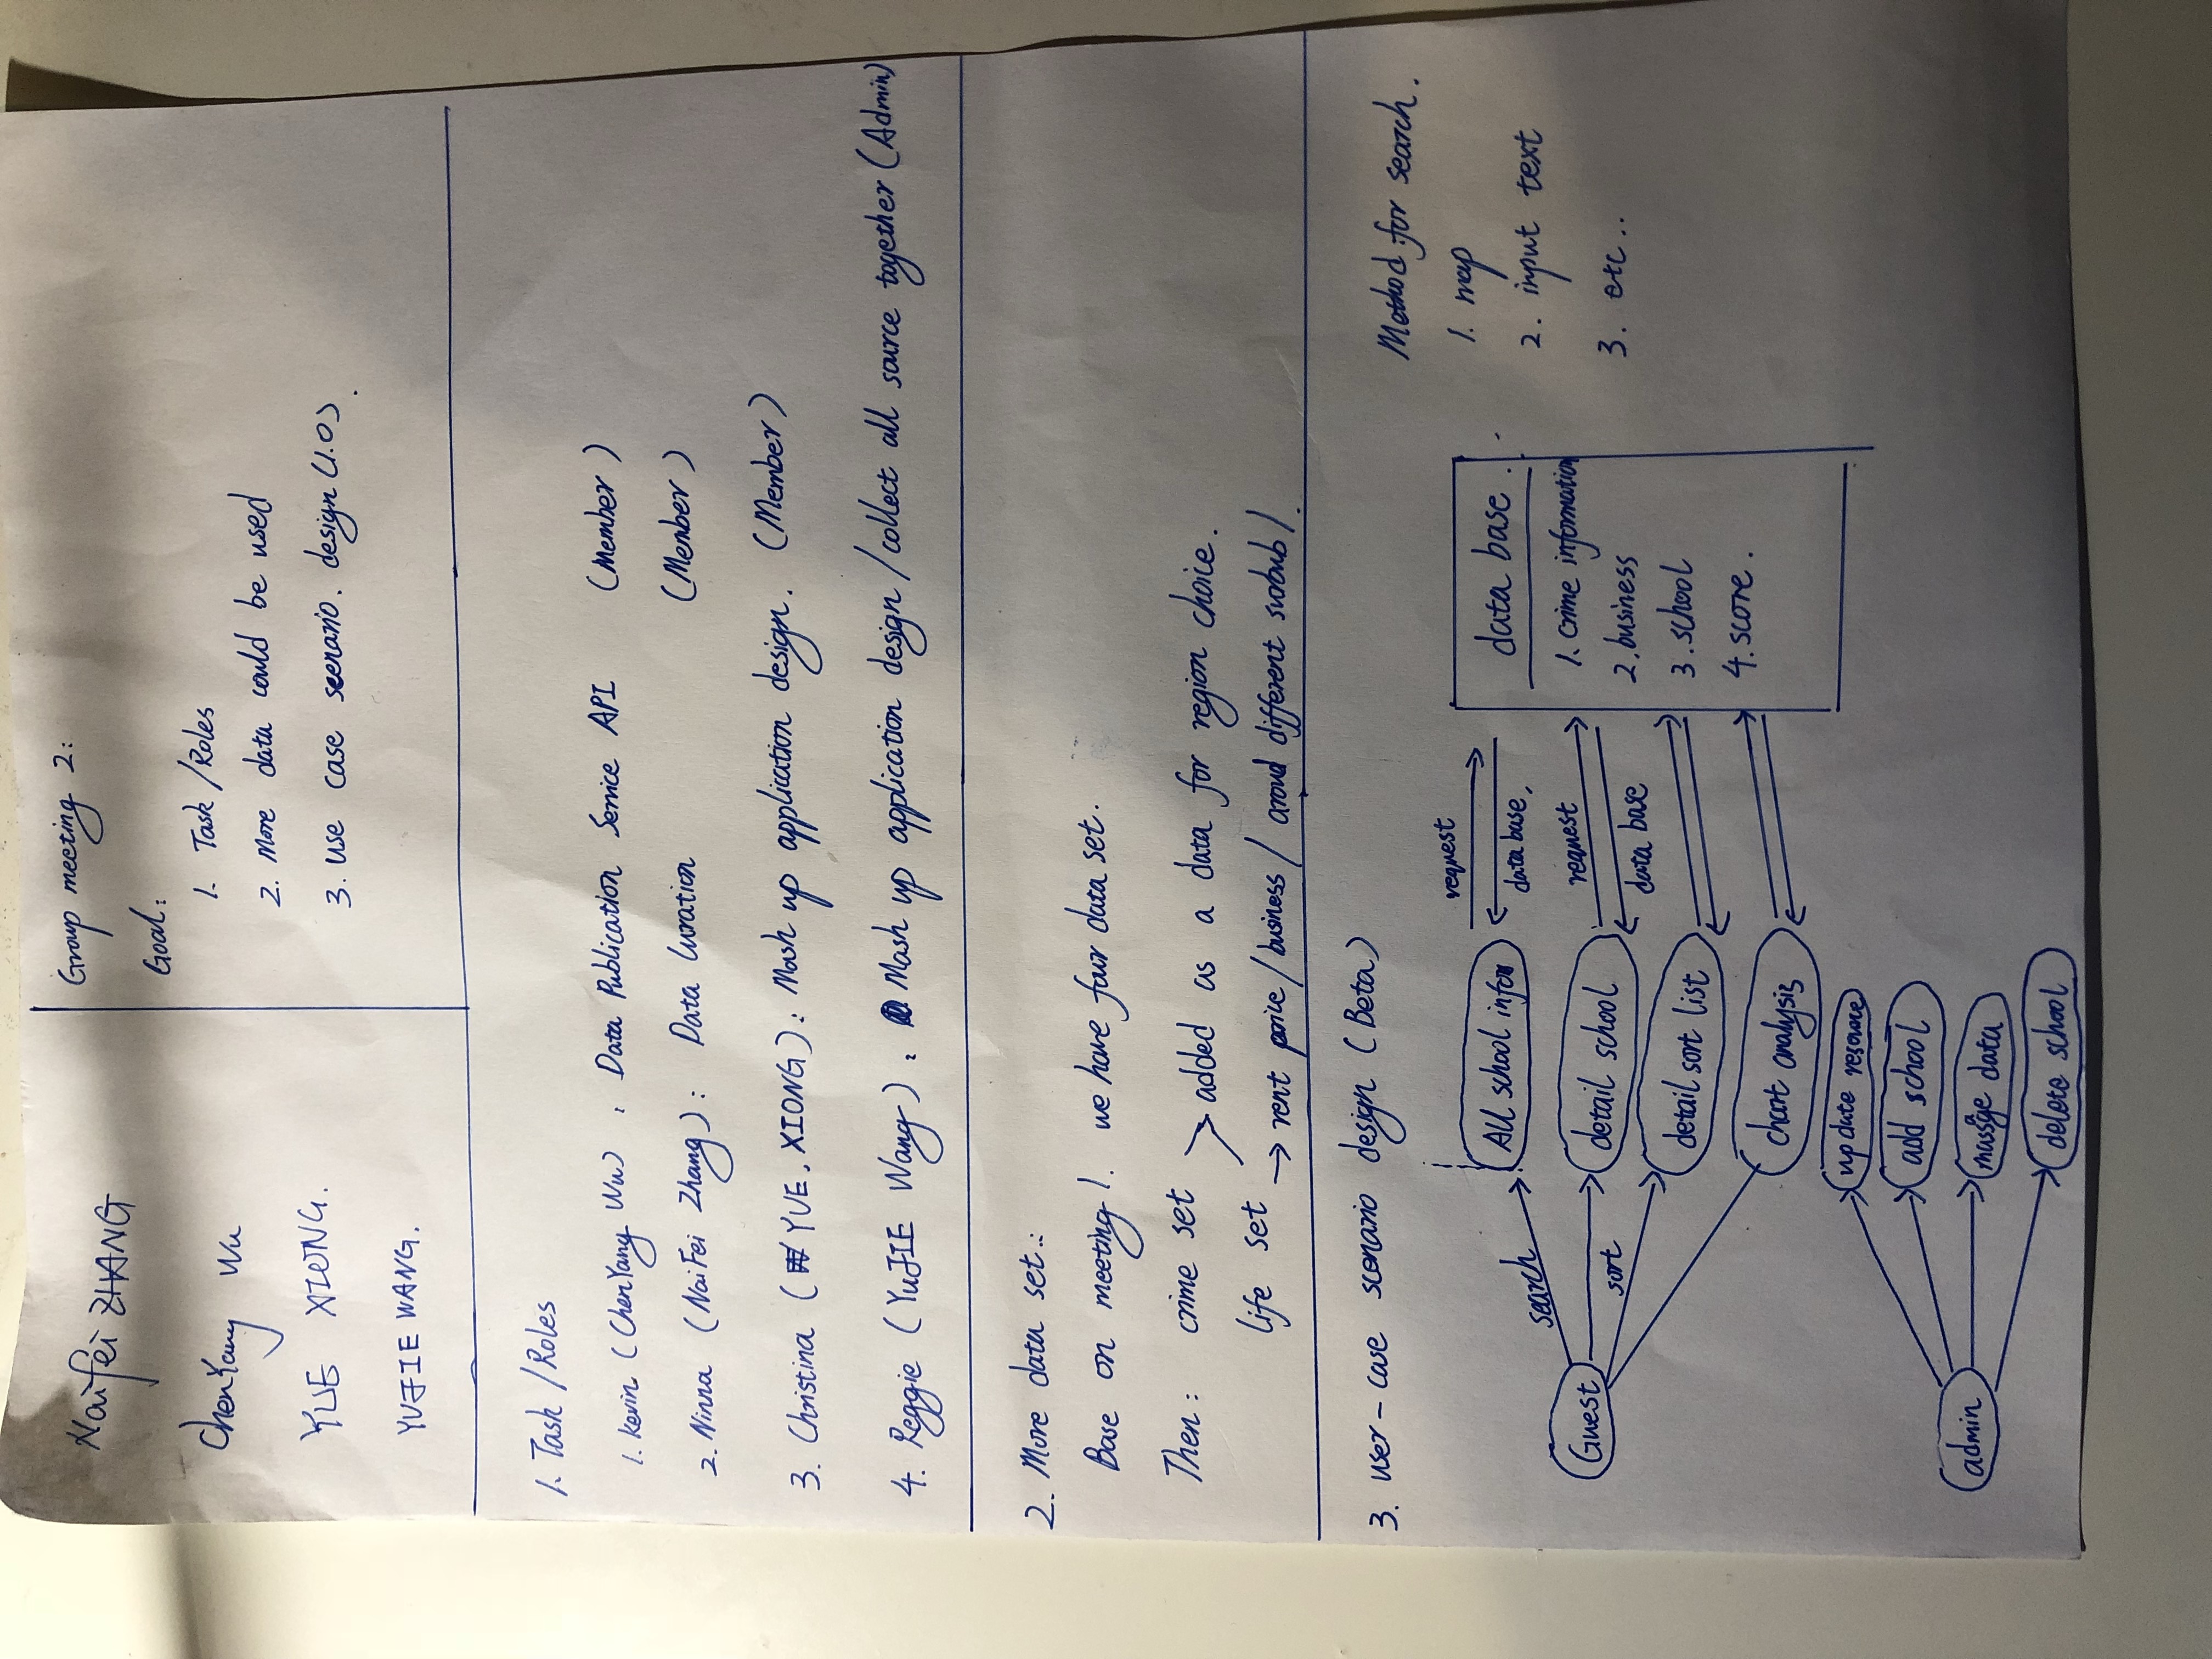 NaiFei ZHANG
ChenYang Wu
YUE XIONG.
YUJIE WANG.
Group meeting 2:
Goal:
1. Task /Roles
2. More data could be used
3. use case scenario. design (1.0).
1. Task /Roles
1. Kevin (ChenYang Wu) : Data Publication Service API (Member)
2. Ninna (NaiFei Zhang): Data Curation (Member)
3. Christina (YUE. XIONG): Mash up application design. (Member)
4. Reggie (YuJIE Wang): Mash up application design /collect all source together (Admin)
2. More data set.:
Base on meeting 1. we have four data set.
Then: crime set
> added as a data for region choice.
life set
→ rent price/business/ aroud different surbub/.
3. user-case scenario design (Beta)
Method for search.
1. map
2. input text
3. etc..
Guest
search
sort
All school infor
detail school
detail sort list
chart analysis
request
data base.
request
data base
data base.
1. crime information
2. business
3. school
4. score.
admin
update resource
add school
data
delete school